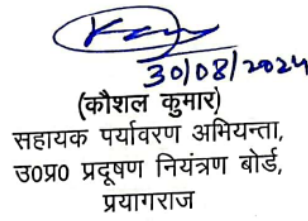 30/08/2024
(कौशल कुमार)
सहायक पर्यावरण अभियन्ता,
उ0प्र0 प्रदूषण नियंत्रण बोर्ड,
प्रयागराज